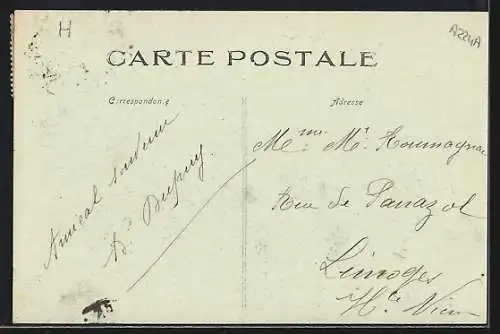 H
A224A
CARTE POSTALE
Correspondance
Adresse
Amical souvenir
Dupuy.
Rue de Panazol
Limoges
Hte Vienne